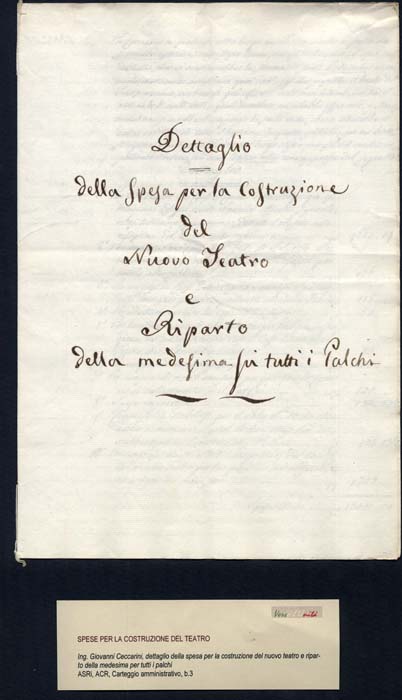 Dettaglio
della Spesa per la Costruzione
del
Nuovo Teatro
e
Riparto
della medesima su tutti i Palchi
SPESE PER LA COSTRUZIONE DEL TEATRO
Ing. Giovanni Ceccarini, dettaglio della spesa per la costruzione del nuovo teatro e ripar-
to della medesima per tutti i palchi
ASRI, ACR, Carteggio amministrativo, b.3